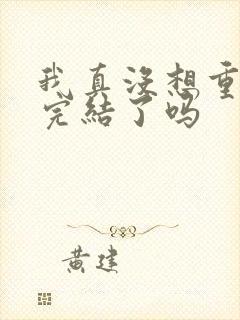 我真没想重
完结了吗
黄建